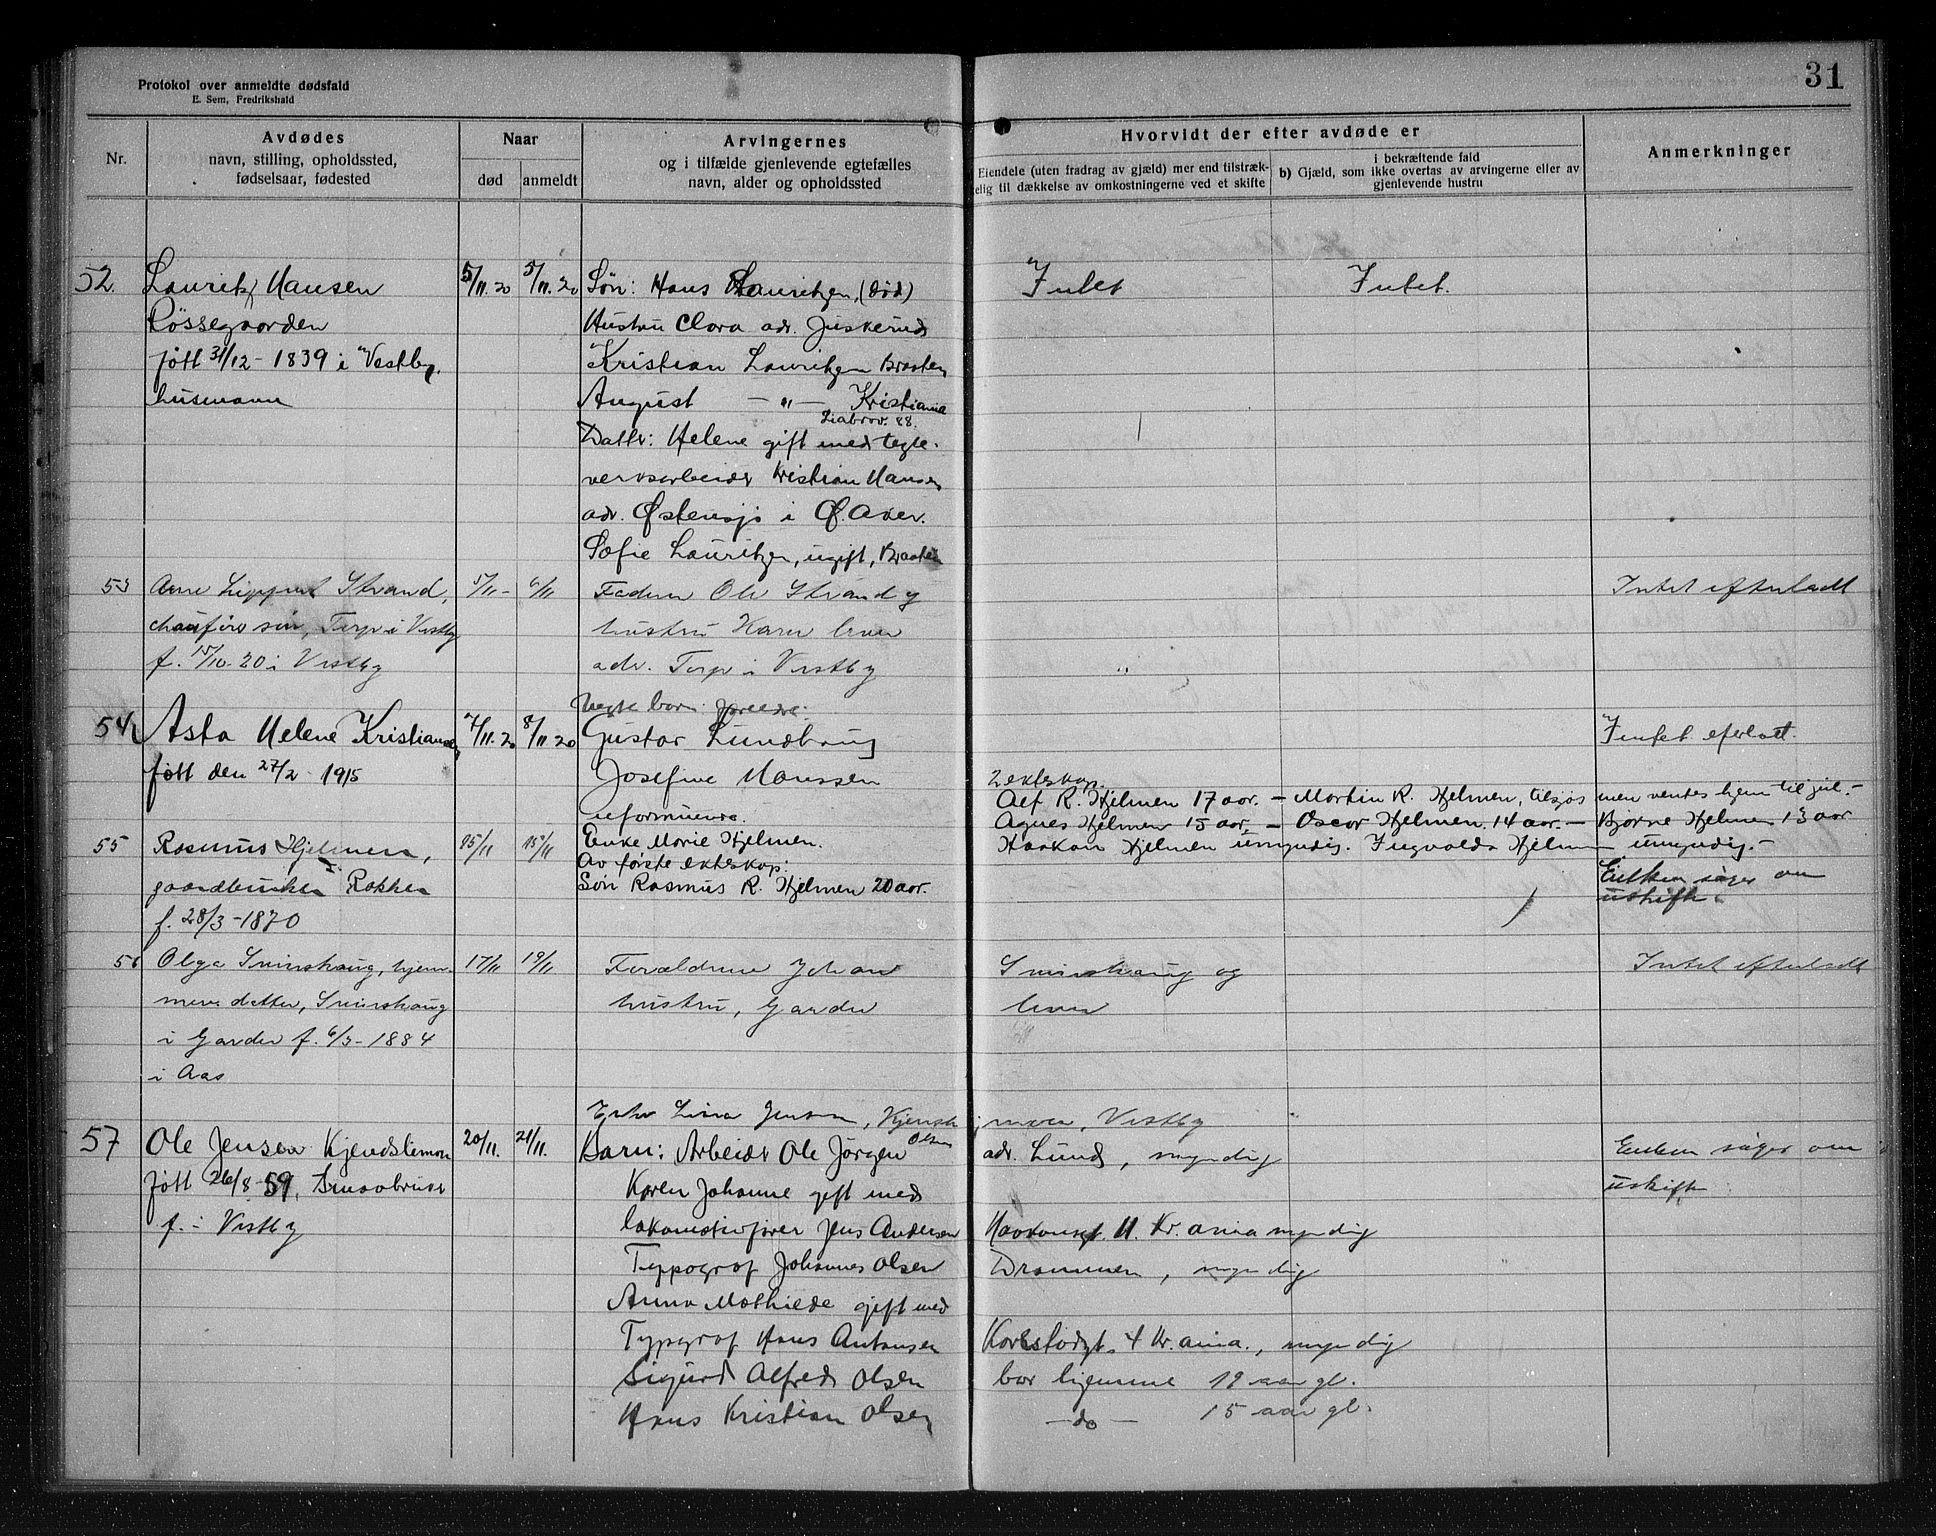 31
Protokol over anmeldte dødsfald
E. Sem, Fredrikshald
Nr.
Avdødes
navn, stilling, opholdssted,
fødselsaar, fødested
Naar
død
anmeldt
Arvingernes
og i tilfælde gjenlevende egtefælles
navn, alder og opholdssted
Hvorvidt der efter avdøde er
Eiendele (uten fradrag av gjæld) mer end tilstræk-
elig til dækkelse av omkostningerne ved et skifte
i bekræftende fald
b) Gjæld, som ikke overtas av arvingerne eller av
gjenlevende hustru
Anmerkninger
52. Lauritz Hansen 5/11.20 5/11.20 Søn: Hans Lauritzen, (død) Intet Intet.
Røssegaarden Hustru Clara adr. Juskerud
født 31/12-1839 i Vestby. Kristian Lauritzen Braaten
husmann August — " — Kristiania
Liabrov. 88.
Datter: Helene gift med tegl-
verksarbeider Kristian Hansen
adr. Østensjø i Ø. Aker.
Sofie Lauritzen, ugift, Braaten
53 Arne Strand, 5/11- 6/11 Faderen Ole Strand og Intet efterladt
chauførs søn, Torp i Vestby hustru Karen lever
f. 15/10-20 i Vestby adr. Torp i Vestby
54 Asta Helene Kristiansen 7/11.20 8/11.20 Gustav Lundhaug Intet efterlatt.
født den 27/2 1915 Josefine Hanssen
2 ekteskap.
Alf R. Hjelmen 17 aar. — Martin R. Hjelmen, tilsjøs men ventes hjem til jul. —
Agnes Hjelmen 15 aar, — Oscar Hjelmen 14 aar. — Bjarne Hjelmen 13 aar
55 Rasmus Hjelmen, 15/11 15/11 Enke Marie Hjelmen. Haakon Hjelmen umyndig. Ingvalda Hjelmen umyndig. —
Av første ekteskap:
gaardbruker Rokken Søn Rasmus R. Hjelmen 20 aar. Enken søger om
uskifte.
f. 28/3-1870
56 Olga Sninskaug, hjem- 17/11 19/11 Forældrene Johan Sninskaug og Intet efterladt
mev. datter, Sninskaug hustru, Garder lever
i Garder f. 6/3-1884
i Aas
Enke Lina Jensen, Vestby
57 Ole Jensen 20/11. 21/11. Barn: Arbeider Ole Jørgen Olsen adr. Lund, myndig Enken søger om
født 26/8-59. Smaabruker Karen Johanne gift med uskifte
f. i Vestby lokomotivfører Jens Andersen Haakonsgt. 11. Kr.ania myndig
Typograf Johannes Olsen Drammen, myndig
Anna Mathilde gift med
Typograf Hans Antonsen Korsfodgt. 4 Kr.ania., myndig
Sigurd Alfred Olsen bor hjemme 19 aar gl.
Hans Kristian Olsen — do — 15 aar gl.